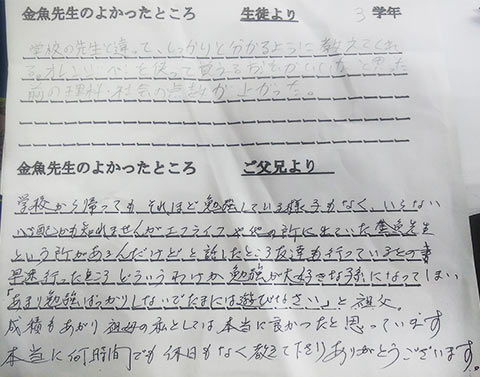 金魚先生のよかったところ 生徒より 3 学年
学校の先生と違って、しっかりと分かるように教えてくれ
る。オレンジペンを使って覚える方がいいと思った
前の理科・社会の点数が上がった。
金魚先生のよかったところ ご父兄より
学校から帰っても それほど勉強している様子もなく、いらない
心配かも知れませんが エフライフや他の所に出ていた 金魚先生
という所があるんだけどと話したところ友達も行っているとの事
早速行ったところ どういうわけか 勉強が大好きな子になってしまい
「あまり勉強ばっかりしないでたまには遊びなさい」と祖父。
成績もあがり 祖母の私としては本当に良かったと思っています
本当に何時間でも休日もなく教えて下さりありがとうございます。